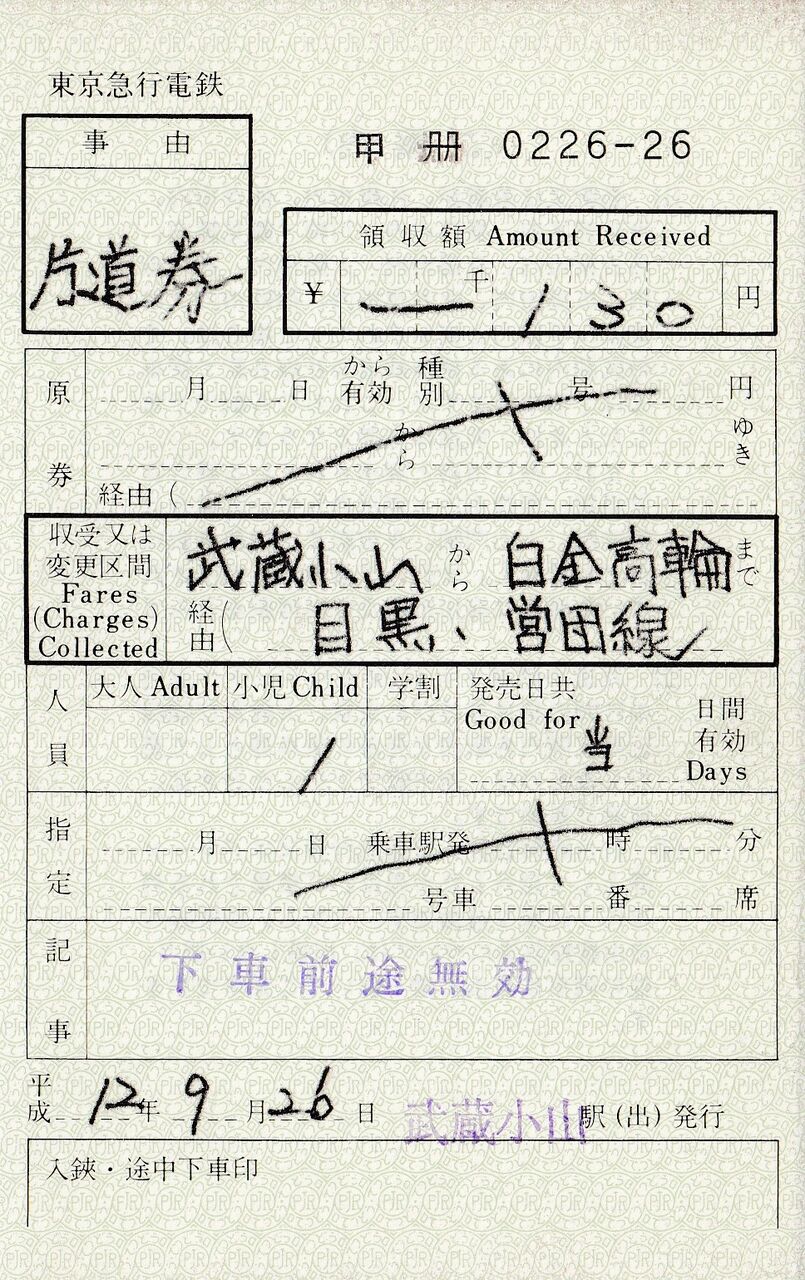 東京急行電鉄
事由
片道券
甲 冊 0226-26
領収額 Amount Received
¥ 一 一 千 1 3 0 円
原券
月 日 から有効 種別 号 円
から ゆき
経由(
収受又は変更区間 Fares (Charges) Collected
武蔵小山 から 白金高輪 まで
経由( 目黒、営団線
人員
大人 Adult 小児 Child 学割
1
発売日共 Good for 当 日間有効 Days
指定
月 日 乗車駅発 時 分
号車 番 席
記事
下車前途無効
平成 12年 9月 26日 武蔵小山駅(出)発行
入鋏・途中下車印